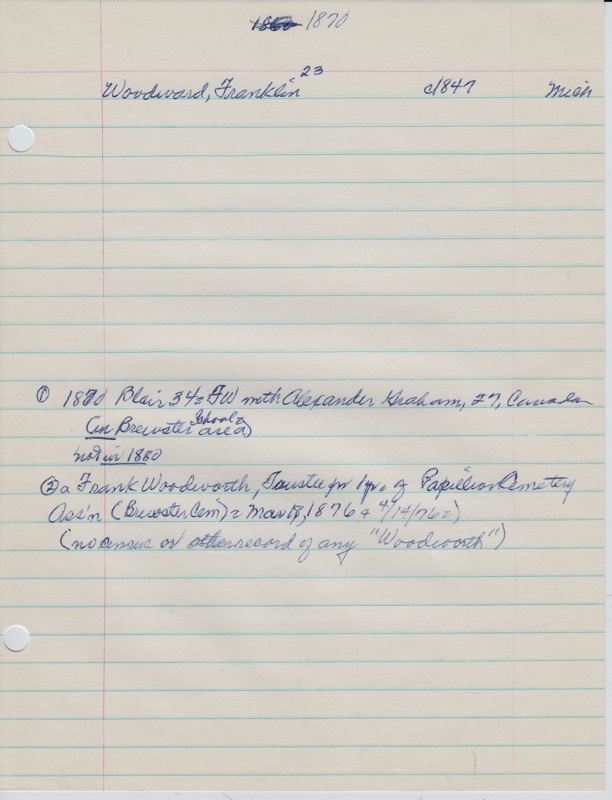 1880 1870
Woodward, Franklin 23 c/1847 Mich
① 1870 Blair 34= FW with Alexander Graham, 27, Canada
(in Brewster School= area)
not in 1880
② a Frank Woodworth, Trustee for 1 yr. of Papillion Cemetery
Ass'n (Brewster Cem) = Mar 18, 1876 & 4/14/76=)
(no census or other record of any "Woodworth")